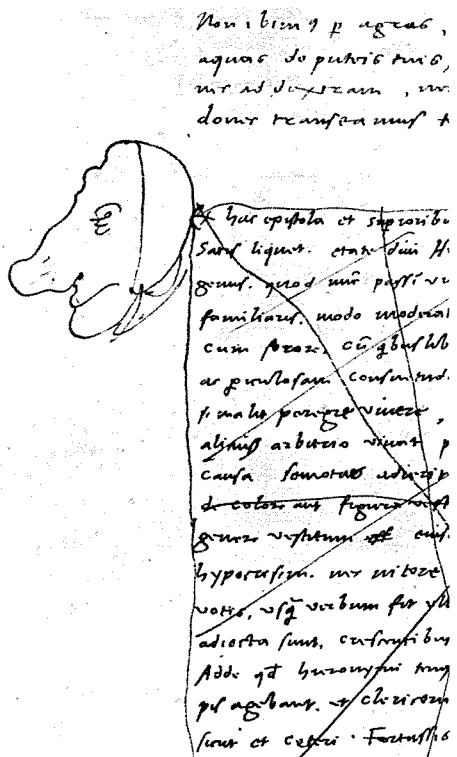 Non ibimus per agros,
aquas de puteis tuis,
nec ad dextram, nec
donec transeamus t
Ex hac epistola et superioribus
Satis liquet. etate divi Hi
genus. quod nunc
familiaris. modo moderat
Cum sorore, cum quibuslibet
ac periculosam consuetud
si malit peregre vivere,
alienis arbitrio vivat p
Causa semotus
de colore aut figura vest
genere vestitum esse eius
hypocrisim. nec nitore
votis, usque verbum fit ull
adiecta sunt, crescentibus
Adde quod hieronymi temp
pis agebant. et clericoru
sicut et ceteri. Fortassis